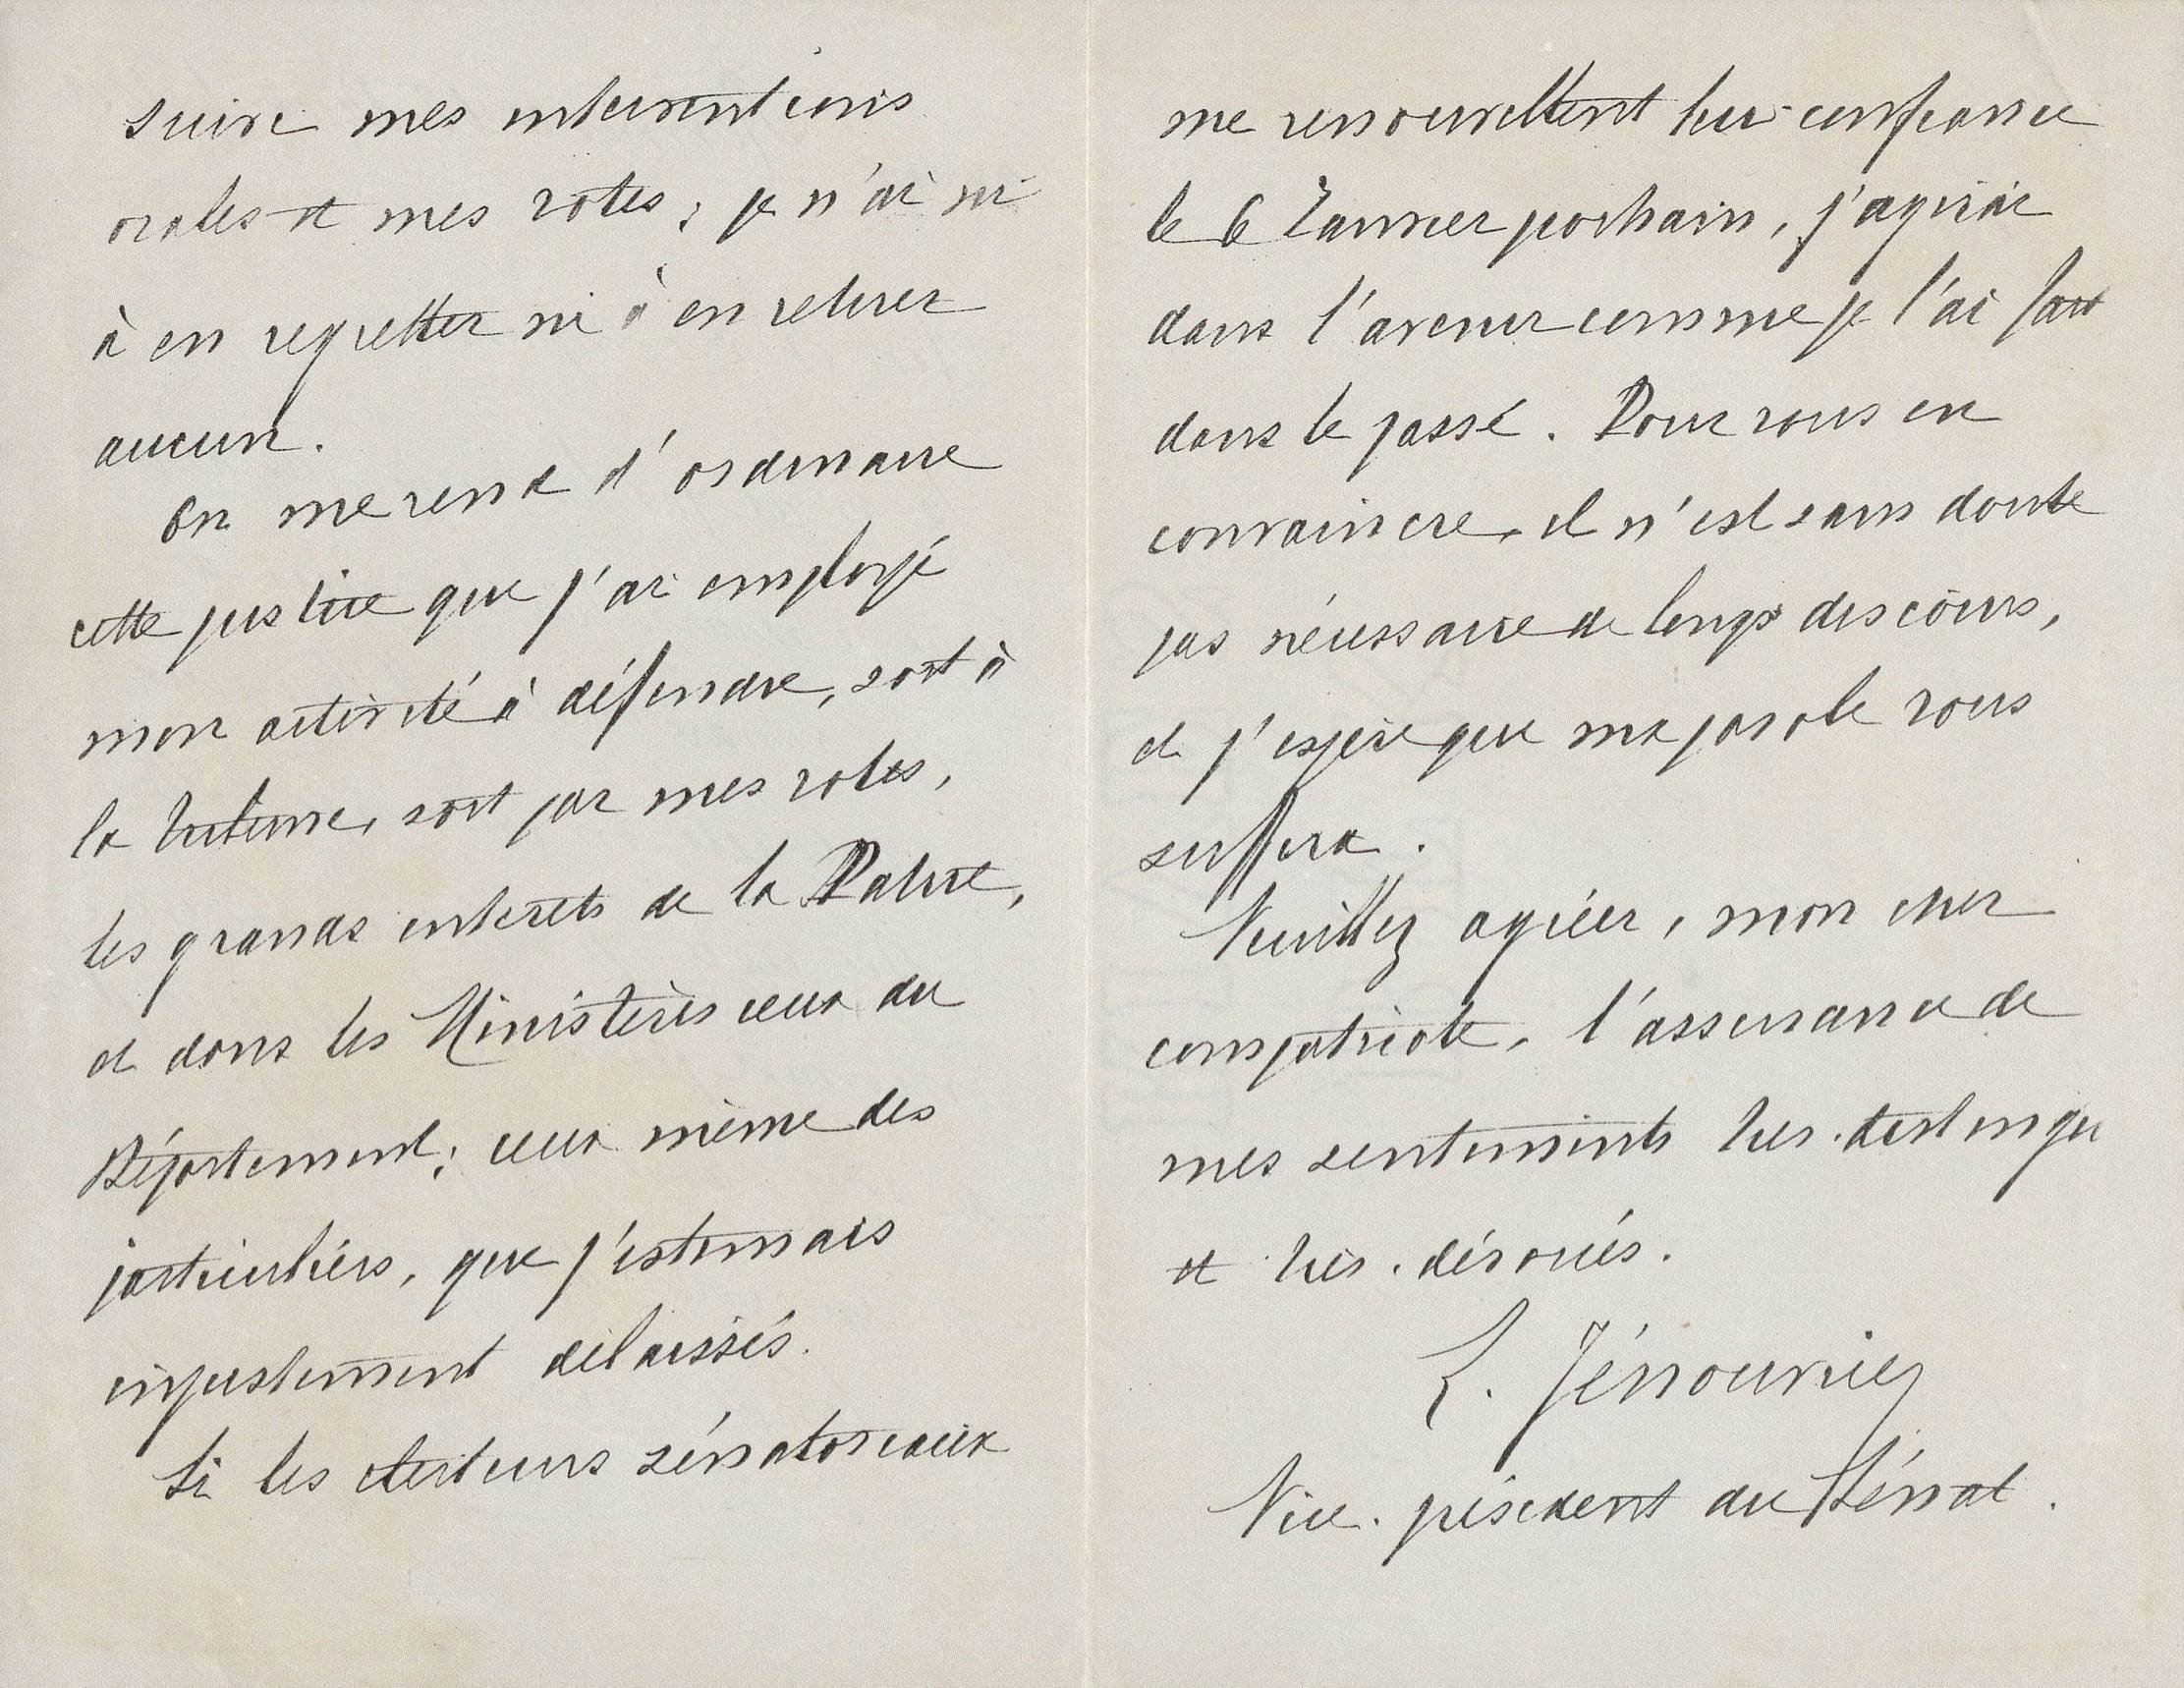 suivre mes interventions
orales et mes votes ; je n'ai ni
à en regretter ni à en retirer
aucun.
On me rend d'ordinaire
cette justice que j'ai employé
mon activité à défendre, soit à
la tribune, soit par mes votes,
les grands intérêts de la Patrie,
et dans les Ministères ceux du
Département ; ceux même des
particuliers, que j'estimais
injustement délaissés.
Si les électeurs sénatoriaux
me renouvellent leur confiance
le 6 Janvier prochain, j'agirai
dans l'avenir comme je l'ai fait
dans le passé. Pour vous en
convaincre, il n'est sans doute
pas nécessaire de longs discours,
et j'espère que ma parole vous
suffira.
Veuillez agréer, mon cher
compatriote, l'assurance de
mes sentiments très distingués
et très dévoués.
L. Jénouvrier
Vice-président du Sénat.